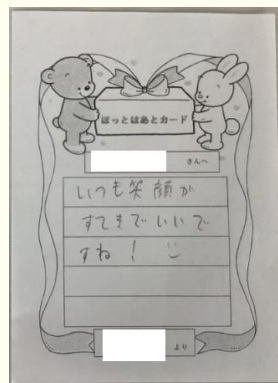 ほっとはあとカード
さんへ
いつも笑顔が
すてきでいいで
すね！
より